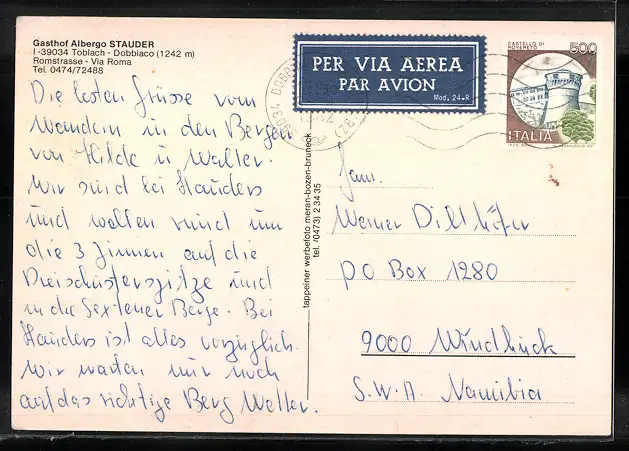 Gasthof Albergo STAUDER
I -39034 Toblach - Dobbiaco (1242 m)
Romstrasse - Via Roma
Tel. 0474/72488
PER VIA AEREA
PAR AVION
Mod. 24-R
CASTELLO DI
ROVERETO
500
ITALIA
Die besten Grüsse vom
Wandern in den Bergen
von Hilde u Walter.
Wir sind bei Stauders
und wollen rund um
die 3 Zinnen auf die
Dreischusterspitze und
in die Sextener Berge. Bei
Stauders ist alles vorzüglich.
Wir warten nur noch
auf das richtige Berg Wetter.
tappeiner werbefoto meran-bozen-bruneck
tel. (0473) 2 34 35
Fam.
Werner
PO Box 1280
9000 Windhuck
S.W.A. Namibia